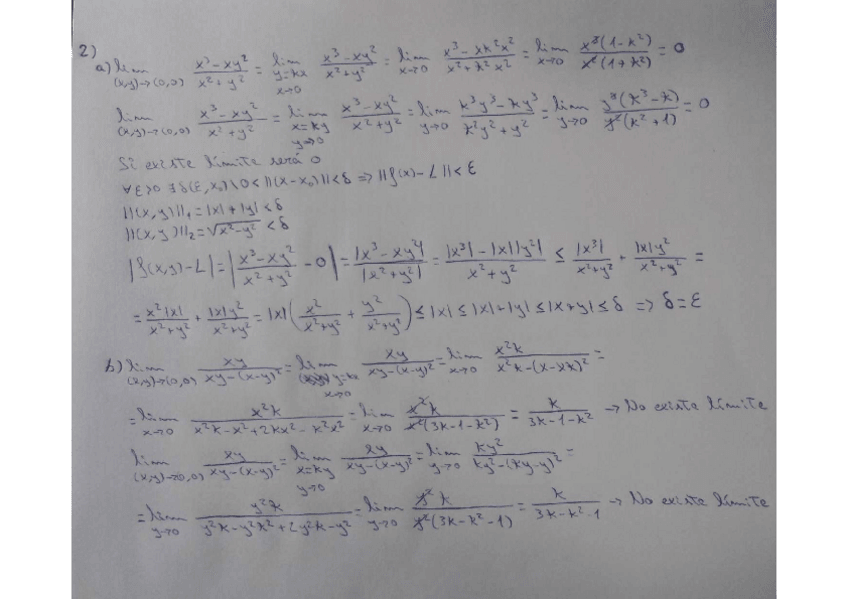 2)
a) lim (x,y)→(0,0) x³-xy²/x²+y² = lim y=kx x→0 x³-xy²/x²+y² = lim x→0 x³-xk²x²/x²+k²x² = lim x→0 x³(1-k²)/x²(1+k²) = 0
lim (x,y)→(0,0) x³-xy²/x²+y² = lim x=ky y→0 x³-xy²/x²+y² = lim y→0 k³y³-ky³/k²y²+y² = lim y→0 y³(k³-k)/y²(k²+1) = 0
Si existe límite será 0
∀ε>0 ∃δ(ε,x₀) \ 0<||(x-x₀)||<δ ⇒ ||f(x)-L||<ε
||(x,y)||₁ = |x|+|y| < δ
||(x,y)||₂ = √x²-y² < δ
|f(x,y)-L| = |x³-xy²/x²+y² - 0| = |x³-xy²|/|x²+y²| = |x³|-|x||y²|/x²+y² ≤ |x³|/x²+y² + |x|y²/x²+y² =
= x²|x|/x²+y² + |x|y²/x²+y² = |x|(x²/x²+y² + y²/x²+y²) ≤ |x| ≤ |x|+|y| ≤ |x+y| ≤ δ ⇒ δ=ε
b) lim (x,y)→(0,0) xy/xy-(x-y)² = lim y=kx x→0 xy/xy-(x-y)² = lim x→0 x²k/x²k-(x-xk)² =
= lim x→0 x²k/x²k-x²+2kx²-k²x² = lim x→0 x²k/x²(3k-1-k²) = k/3k-1-k² → No existe límite
lim (x,y)→(0,0) xy/xy-(x-y)² = lim x=ky y→0 xy/xy-(x-y)² = lim y→0 ky²/ky²-(ky-y)² =
= lim y→0 y²k/y²k-y²k²+2y²k-y² = lim y→0 y²k/y²(3k-k²-1) = k/3k-k²-1 → No existe límite